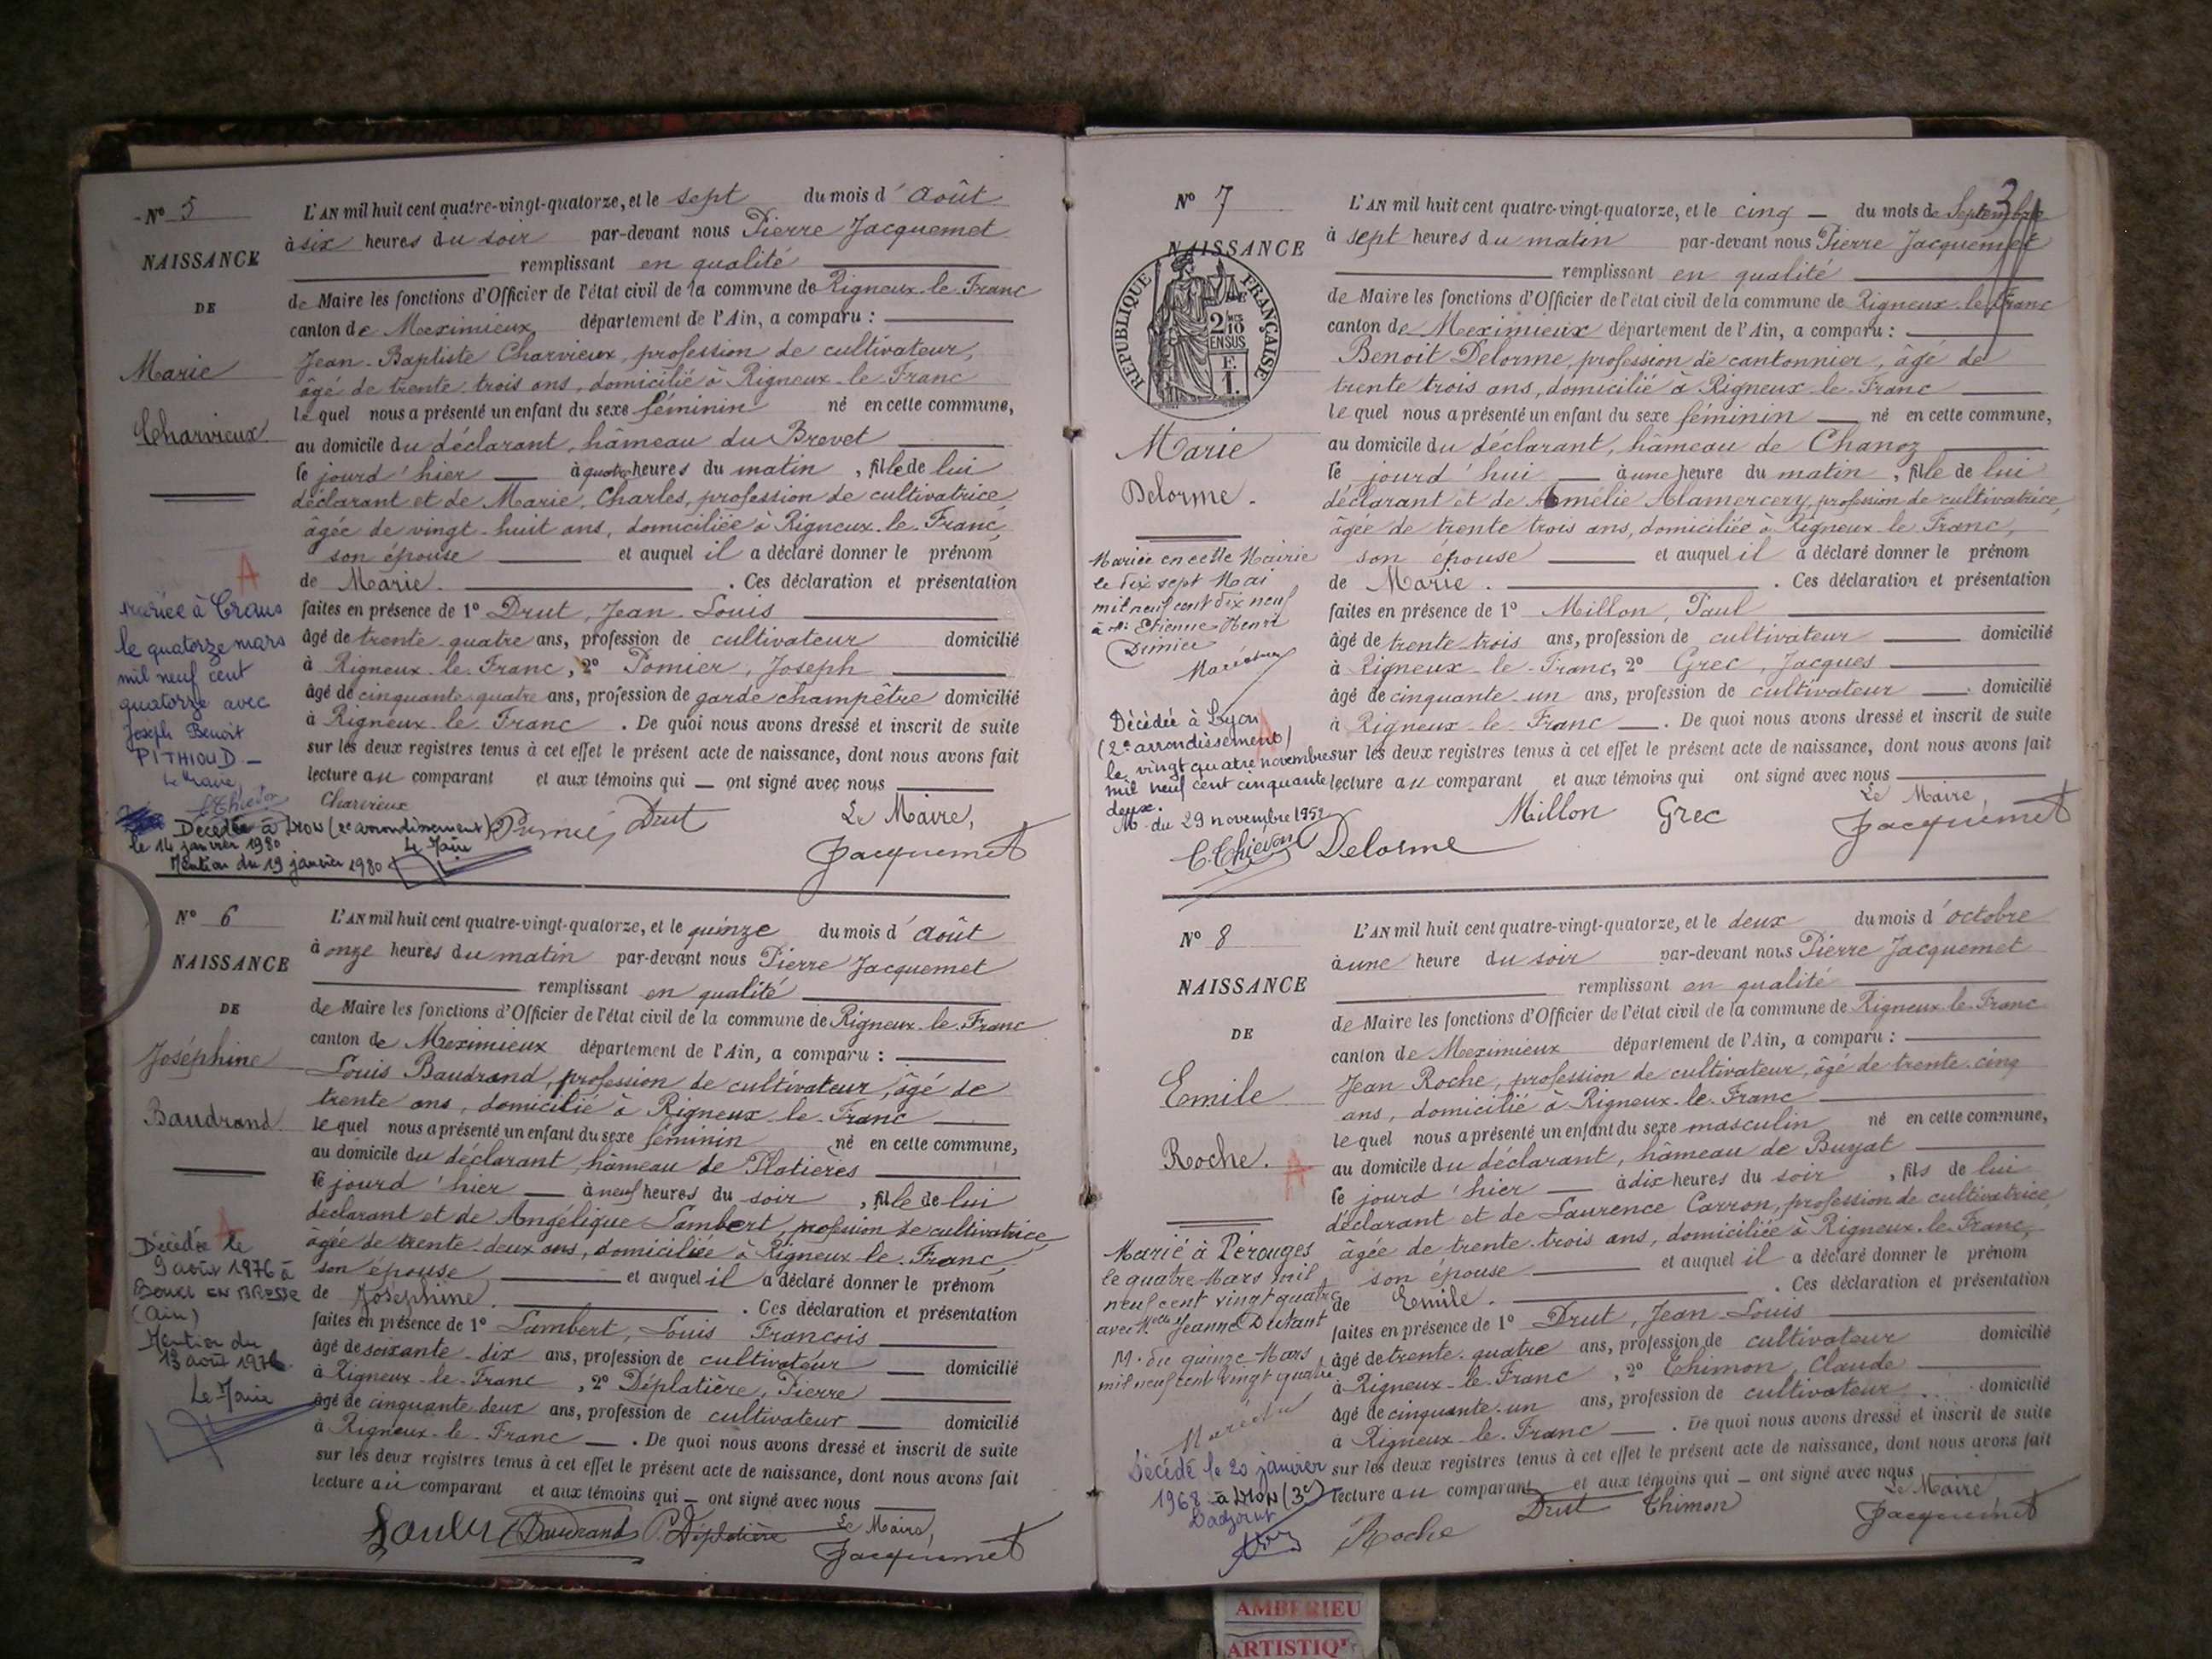 N° 5
NAISSANCE
DE
Marie
Charvieux
L'AN mil huit cent quatre-vingt-quatorze, et le sept du mois d'août
à six heures du soir par-devant nous Pierre Jacquemet
remplissant en qualité
de Maire les fonctions d'Officier de l'état civil de la commune de Rigneux-le-Franc
canton de Meximieux département de l'Ain, a comparu :
Jean-Baptiste Charvieux, profession de cultivateur,
âgé de trente-trois ans, domicilié à Rigneux-le-Franc
lequel nous a présenté un enfant du sexe féminin né en cette commune,
au domicile du déclarant, hâmeau du Brevet
le jourd'hier à quatre heures du matin, fille de lui
déclarant et de Marie, Charles, profession de cultivatrice
âgée de vingt-huit ans, domiciliée à Rigneux-le-Franc,
son épouse et auquel il a déclaré donner le prénom
de Marie. Ces déclaration et présentation
faites en présence de 1° Drut, Jean-Louis
âgé de trente-quatre ans, profession de cultivateur domicilié
à Rigneux-le-Franc, 2° Pomier, Joseph
âgé de cinquante-quatre ans, profession de garde champêtre domicilié
à Rigneux-le-Franc. De quoi nous avons dressé et inscrit de suite
sur les deux registres tenus à cet effet le présent acte de naissance, dont nous avons fait
lecture au comparant et aux témoins qui ont signé avec nous
Charvieux
Drut
Le Maire,
Jacquemet
A
mariée à Crans
le quatorze mars
mil neuf cent
quatorze avec
Joseph Benoit
PITHIOUD
Le Maire,
C. Thievon
Décédée à LYON (2e arrondissement)
le 14 janvier 1980
Mention du 19 janvier 1980
Le Maire
N° 6
NAISSANCE
DE
Joséphine
Baudrand
L'AN mil huit cent quatre-vingt-quatorze, et le quinze du mois d'août
à onze heures du matin par-devant nous Pierre Jacquemet
remplissant en qualité
de Maire les fonctions d'Officier de l'état civil de la commune de Rigneux-le-Franc
canton de Meximieux département de l'Ain, a comparu :
Louis Baudrand, profession de cultivateur, âgé de
trente ans, domicilié à Rigneux-le-Franc
lequel nous a présenté un enfant du sexe féminin né en cette commune,
au domicile du déclarant hâmeau de Platières
le jourd'hier à neuf heures du soir, fille de lui
déclarant et de Angélique Lambert, profession de cultivatrice
âgée de trente-deux ans, domiciliée à Rigneux-le-Franc,
son épouse et auquel il a déclaré donner le prénom
de Joséphine. Ces déclaration et présentation
faites en présence de 1° Lambert, Louis François
âgé de soixante-dix ans, profession de cultivateur domicilié
à Rigneux-le-Franc, 2° Déplatière, Pierre
âgé de cinquante deux ans, profession de cultivateur domicilié
à Rigneux-le-Franc. De quoi nous avons dressé et inscrit de suite
sur les deux registres tenus à cet effet le présent acte de naissance, dont nous avons fait
lecture au comparant et aux témoins qui ont signé avec nous
Baudrand P. Déplatière
Le Maire,
Jacquemet
A
Décédée le
9 août 1976 à
BOURG EN BRESSE
(Ain)
Mention du
13 août 1976.
Le Maire
N° 7
NAISSANCE
RÉPUBLIQUE FRANÇAISE
DE
2/10 EN SUS
E.
1.
Marie
Delorme.
3
L'AN mil huit cent quatre-vingt-quatorze, et le cinq du mois de Septembre
à sept heures du matin par-devant nous Pierre Jacquemet
remplissant en qualité
de Maire les fonctions d'Officier de l'état civil de la commune de Rigneux-le-Franc
canton de Meximieux département de l'Ain, a comparu :
Benoit Delorme, profession de cantonnier, âgé de
trente trois ans, domicilié à Rigneux-le-Franc
lequel nous a présenté un enfant du sexe féminin né en cette commune,
au domicile du déclarant, hâmeau de Chanoz
le jourd'hui à une heure du matin, fille de lui
déclarant et de Amélie Alamercery, profession de cultivatrice
âgée de trente trois ans, domiciliée à Rigneux-le-Franc,
son épouse et auquel il a déclaré donner le prénom
de Marie. Ces déclaration et présentation
faites en présence de 1° Millon, Paul
âgé de trente trois ans, profession de cultivateur domicilié
à Rigneux-le-Franc, 2° Grec, Jacques
âgé de cinquante-un ans, profession de cultivateur domicilié
à Rigneux-le-Franc. De quoi nous avons dressé et inscrit de suite
sur les deux registres tenus à cet effet le présent acte de naissance, dont nous avons fait
lecture au comparant et aux témoins qui ont signé avec nous
Millon Grec
Le Maire,
Jacquemet
Delorme
Mariée en cette Mairie
le dix sept Mai
mil neuf cent dix neuf
à Mr Etienne Henri
A
Décédée à Lyon
(2e arrondissement)
le vingt quatre novembre
mil neuf cent cinquante
deux.
M. du 29 novembre 1952
C. Thievon
N° 8
NAISSANCE
DE
Emile
Roche.
L'AN mil huit cent quatre-vingt-quatorze, et le deux du mois d'octobre
à une heure du soir par-devant nous Pierre Jacquemet
remplissant en qualité
de Maire les fonctions d'Officier de l'état civil de la commune de Rigneux-le-Franc
canton de Meximieux département de l'Ain, a comparu :
Jean Roche, profession de cultivateur, âgé de trente-cinq
ans, domicilié à Rigneux-le-Franc
lequel nous a présenté un enfant du sexe masculin né en cette commune,
au domicile du déclarant, hâmeau de Buyat
le jourd'hier à dix heures du soir, fils de lui
déclarant et de Laurence Carron, profession de cultivatrice
âgée de trente-trois ans, domiciliée à Rigneux-le-Franc,
son épouse et auquel il a déclaré donner le prénom
de Emile. Ces déclaration et présentation
faites en présence de 1° Drut, Jean-Louis
âgé de trente-quatre ans, profession de cultivateur domicilié
à Rigneux-le-Franc, 2° Thimon, Claude
âgé de cinquante-un ans, profession de cultivateur domicilié
à Rigneux-le-Franc. De quoi nous avons dressé et inscrit de suite
sur les deux registres tenus à cet effet le présent acte de naissance, dont nous avons fait
lecture au comparant et aux témoins qui ont signé avec nous
Drut Thimon
Le Maire
Jacquemet
Roche
A
Marié à Pérouges
le quatre Mars mil
neuf cent vingt quatre
avec Melle Jeanne Dutant
M. du quinze Mars
mil neuf cent vingt quatre
Décédé le 20 janvier
1968 à LYON (3e)
AMBERIEU
ARTISTIQ